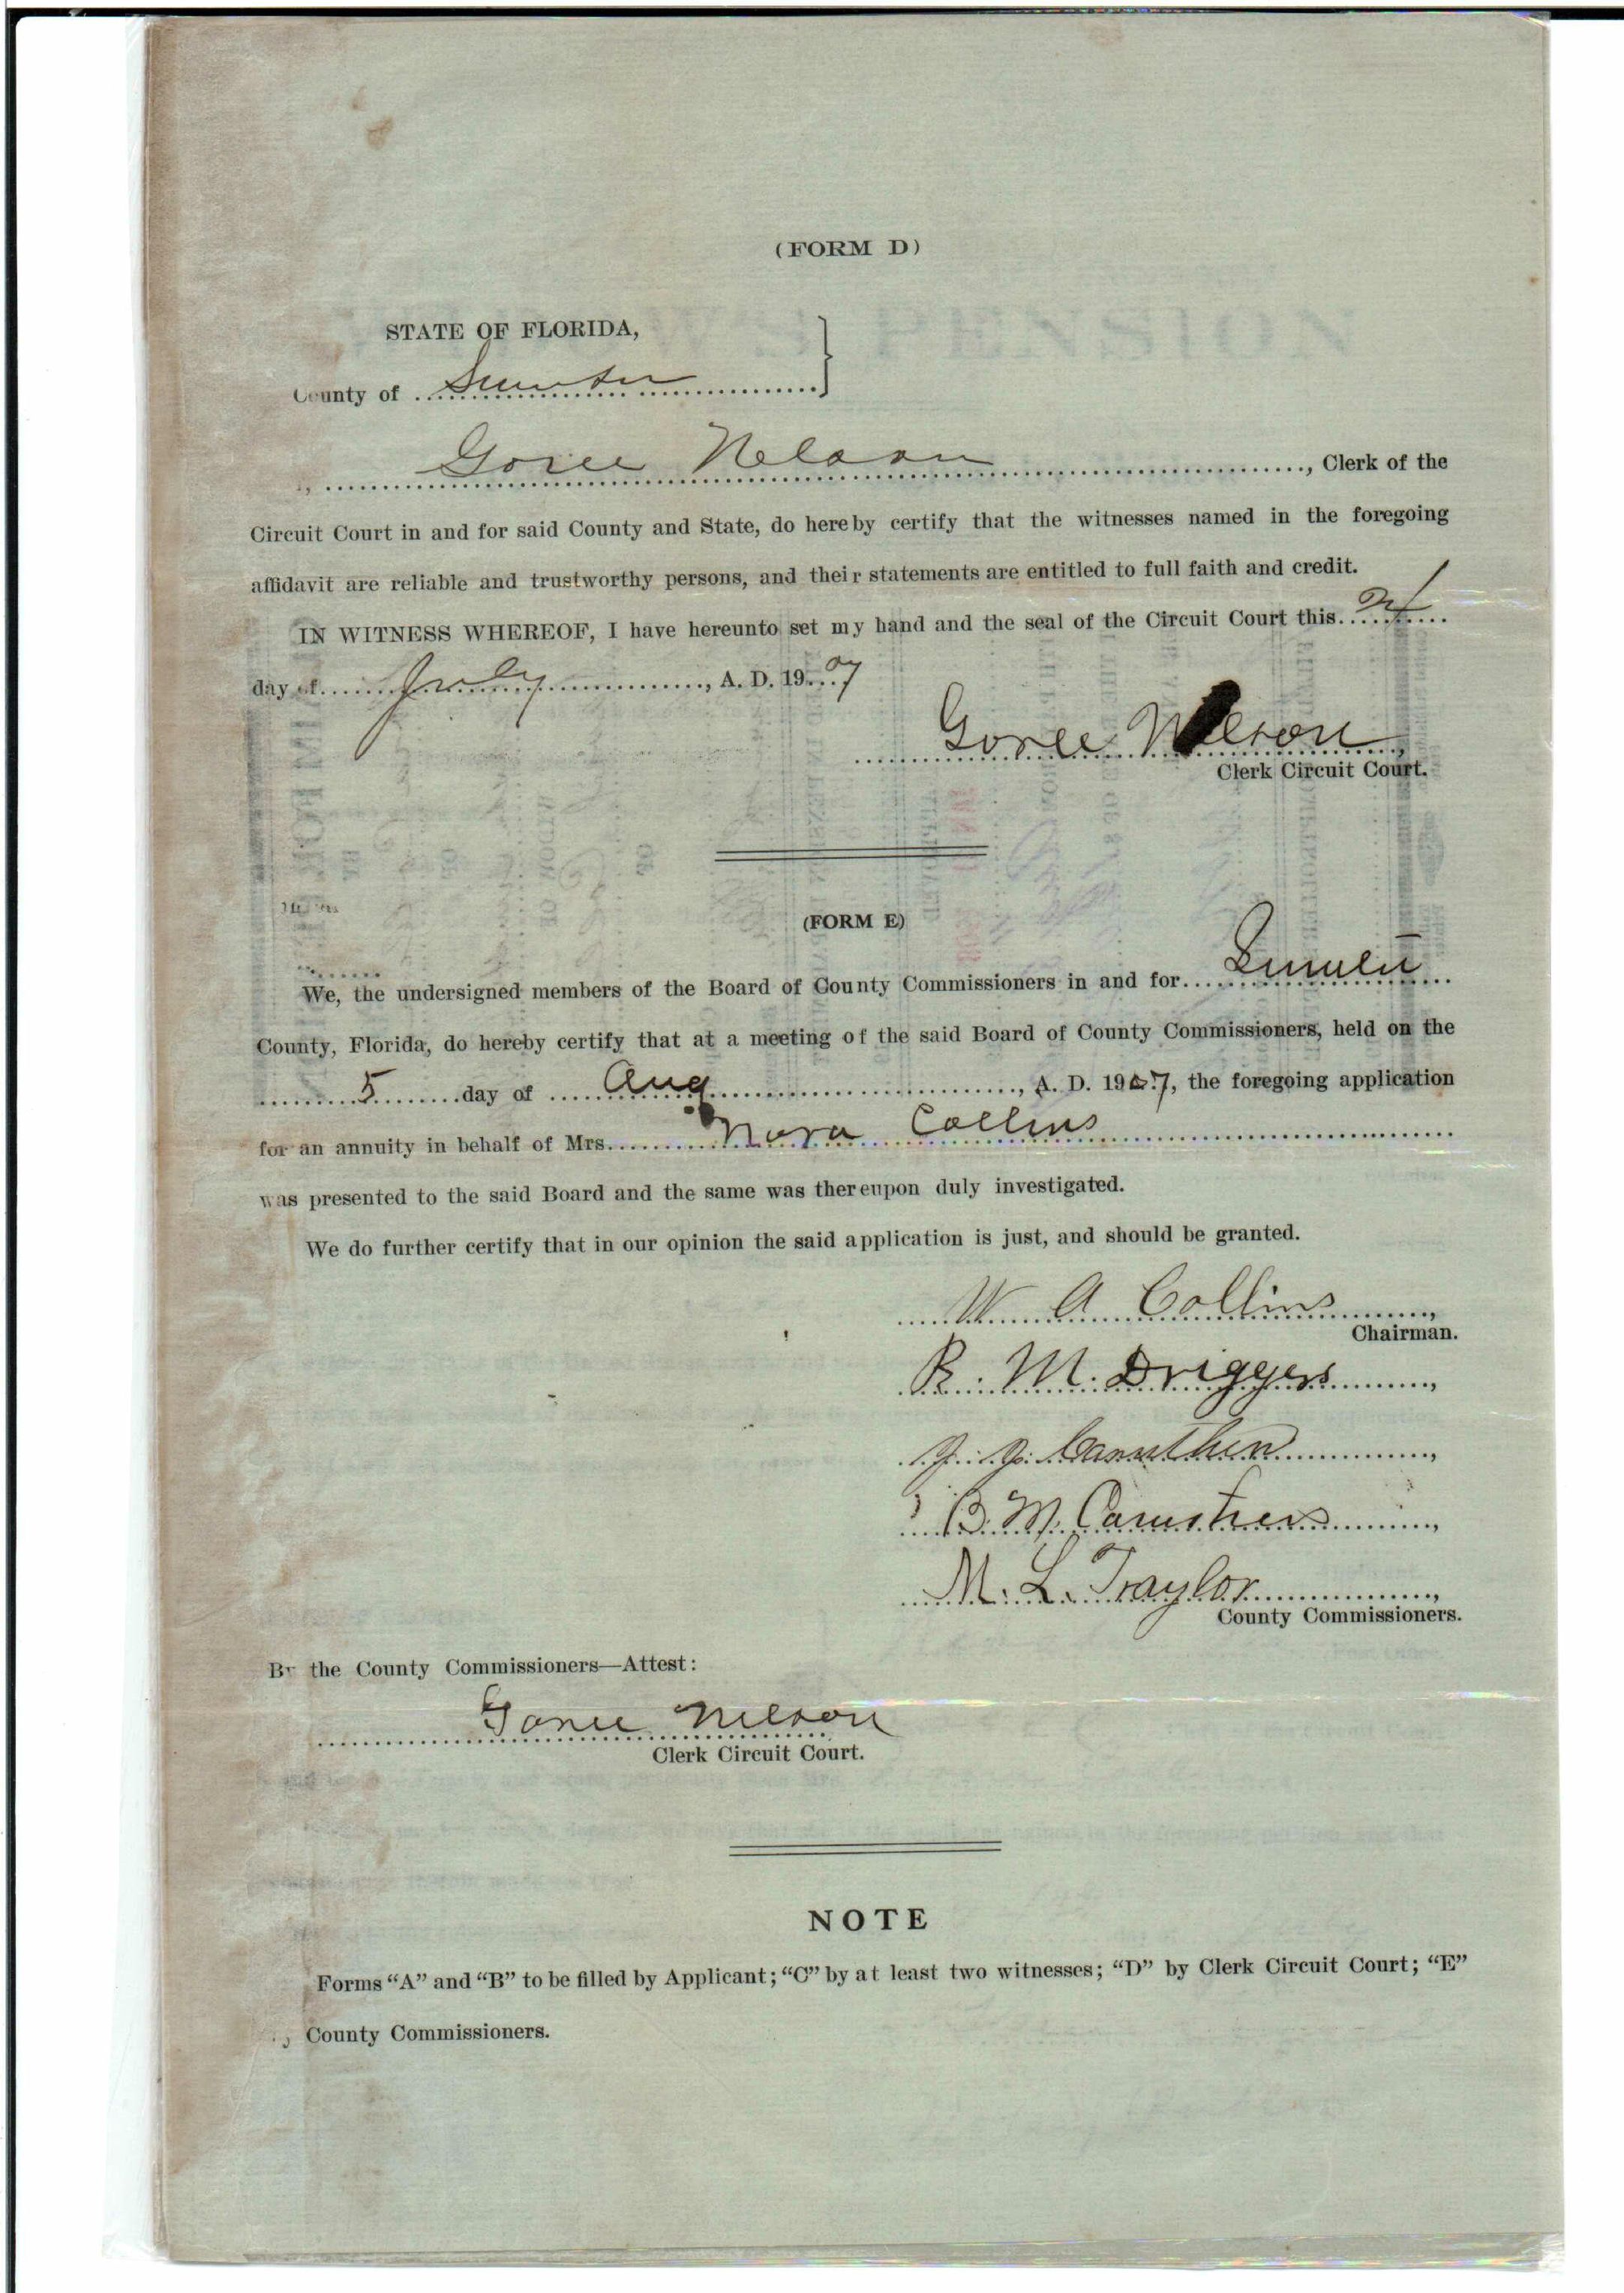 (FORM D)
STATE OF FLORIDA,
County of Sumter
Goree Nelson, Clerk of the
Circuit Court in and for said County and State, do hereby certify that the witnesses named in the foregoing
affidavit are reliable and trustworthy persons, and their statements are entitled to full faith and credit.
IN WITNESS WHEREOF, I have hereunto set my hand and the seal of the Circuit Court this
day of July, A. D. 1907
Goree Nelson
Clerk Circuit Court.
(FORM E)
We, the undersigned members of the Board of County Commissioners in and for Sumter
County, Florida, do hereby certify that at a meeting of the said Board of County Commissioners, held on the
5 day of Aug, A. D. 1907, the foregoing application
for an annuity in behalf of Mrs. Nora Collins
was presented to the said Board and the same was thereupon duly investigated.
We do further certify that in our opinion the said application is just, and should be granted.
W A Collins,
Chairman.
R. M. Driggers,
Caruthers,
B. M. Caruthers,
M. L. Traylor,
County Commissioners.
By the County Commissioners—Attest:
Goree Nelson
Clerk Circuit Court.
NOTE
Forms “A” and “B” to be filled by Applicant; “C” by at least two witnesses; “D” by Clerk Circuit Court; “E”
County Commissioners.